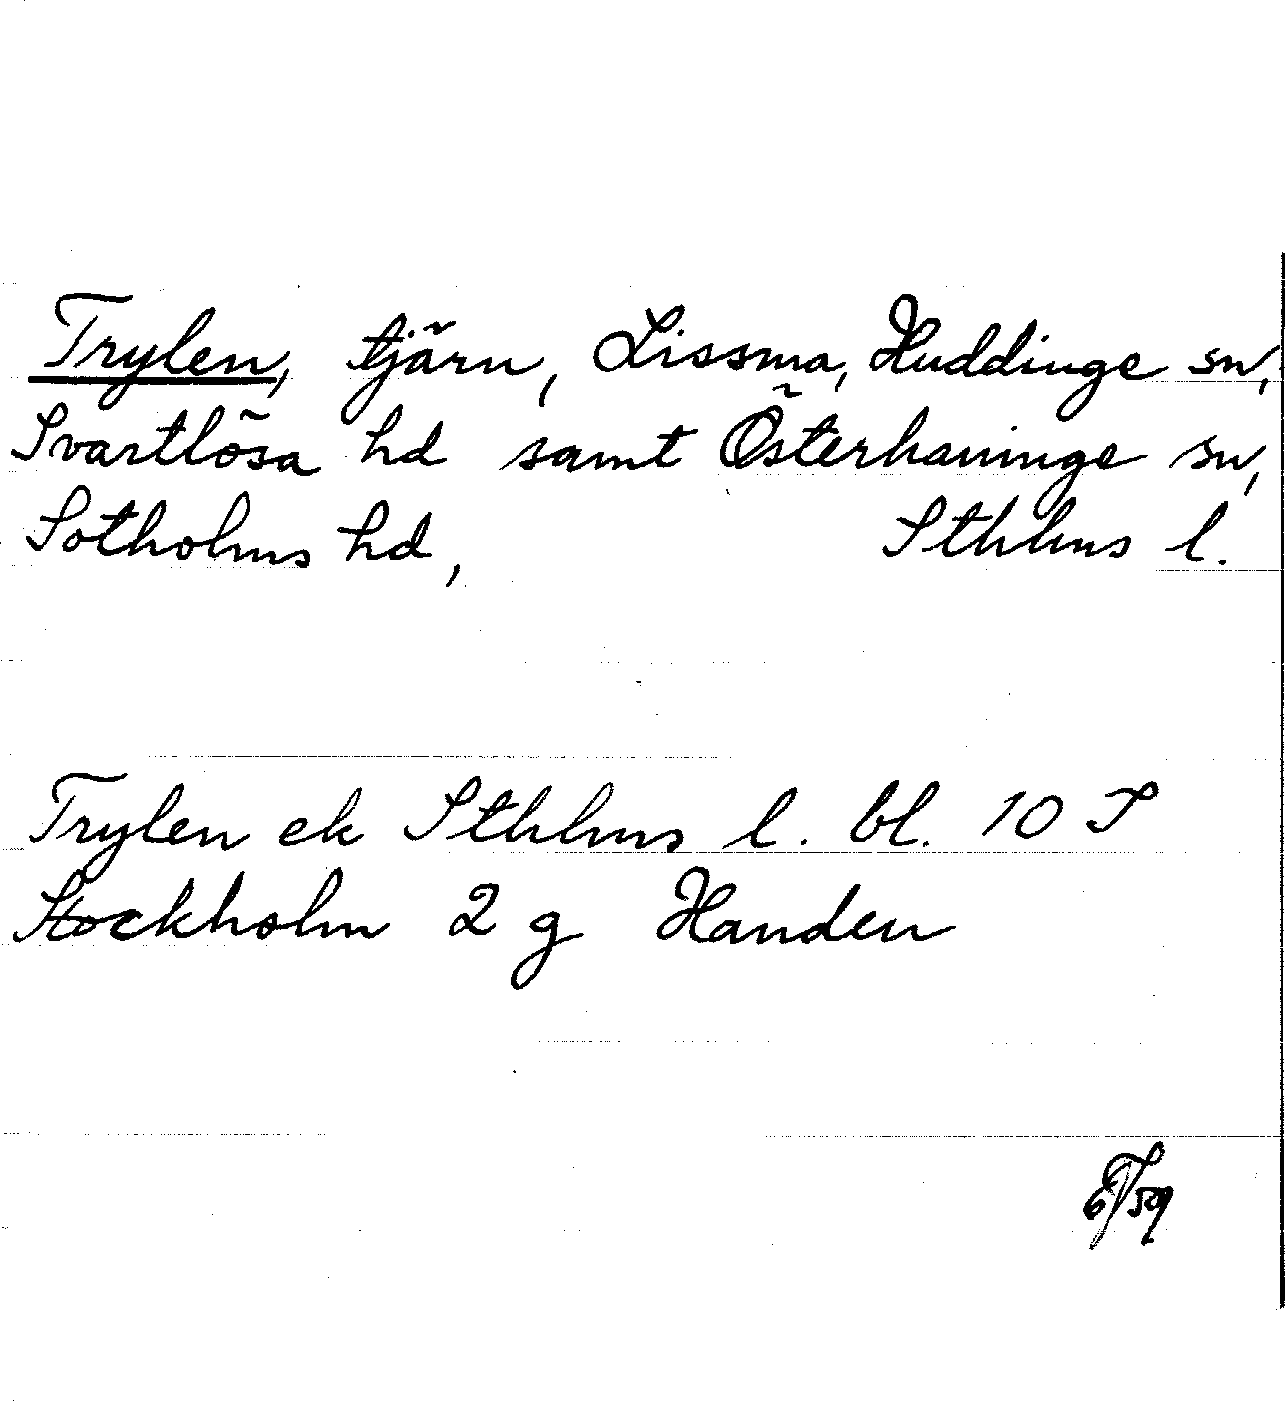 Trylen, tjärn, Lissma, Huddinge sn,
Svartlösa hd samt Österhaninge sn,
Sotholms hd, Sthlms l.
Trylen ek Sthlms l. bl. 10 S
Stockholm 2 g Handen